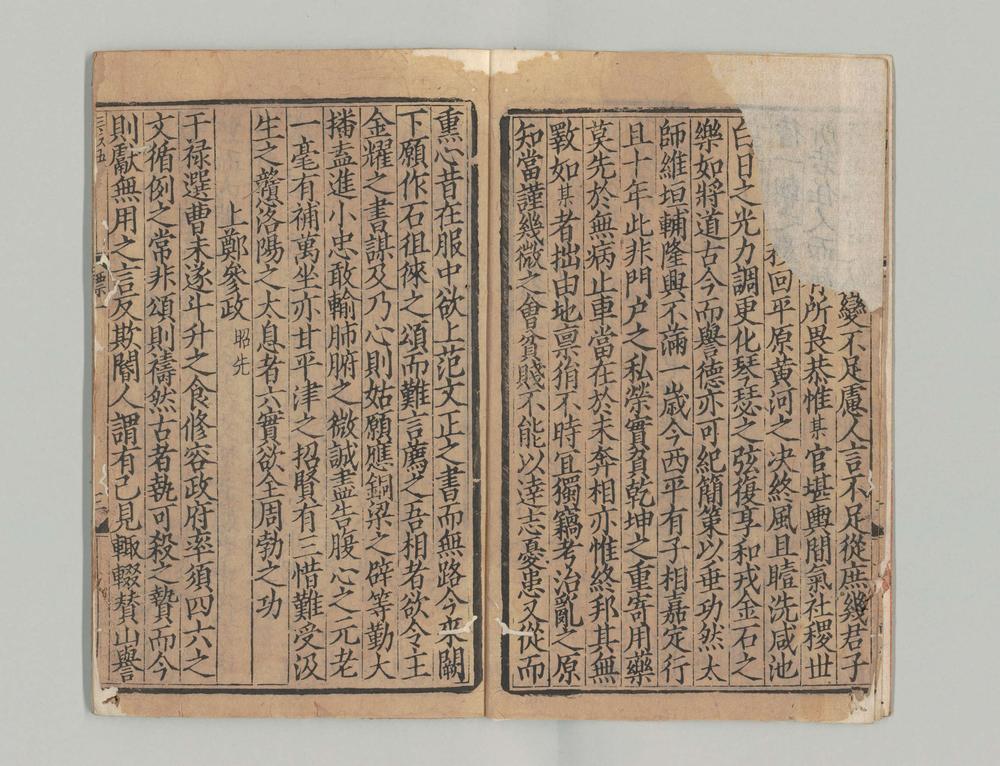 變不足慮人言不足從庶幾君子
所畏恭惟某官堪輿間氣社稷世
回平原黄河之决終風且曀洗咸池
白日之光力調更化琴瑟之弦復亨和戎金石之
樂如將道古今而譽德亦可紀簡策以垂功然太
師維垣輔隆興不滿一歳今西平有子相嘉定行
且十年此非門户之私榮實貧乾坤之重寄用藥
莫先於無病止車當在於未奔相亦惟終邦其無
斁如某者拙由地禀狷不時冝獨竊考治亂之原
知當謹幾微之會貧賤不能以逹志憂患又從而
熏心昔在服中欲上范文正之書而無路今来闕
下願作石徂徠之頌而難言薦之吾相者欲令主
金耀之書謀及乃心則姑願應銅梁之辟等勤大
播盍進小忠敢輸肺腑之微誠盡告腹心之元老
一毫有補萬坐亦甘平津之招賢有三惜難受汲
生之戇洛陽之太息者六實欲全周勃之功
上鄭參政昭先
干禄選曹未遂斗升之食修容政府率須四六之
文循例之常非頌則禱然古者執可殺之贄而今
則獻無用之言反欺閽人謂有己見輙輟賛山譽